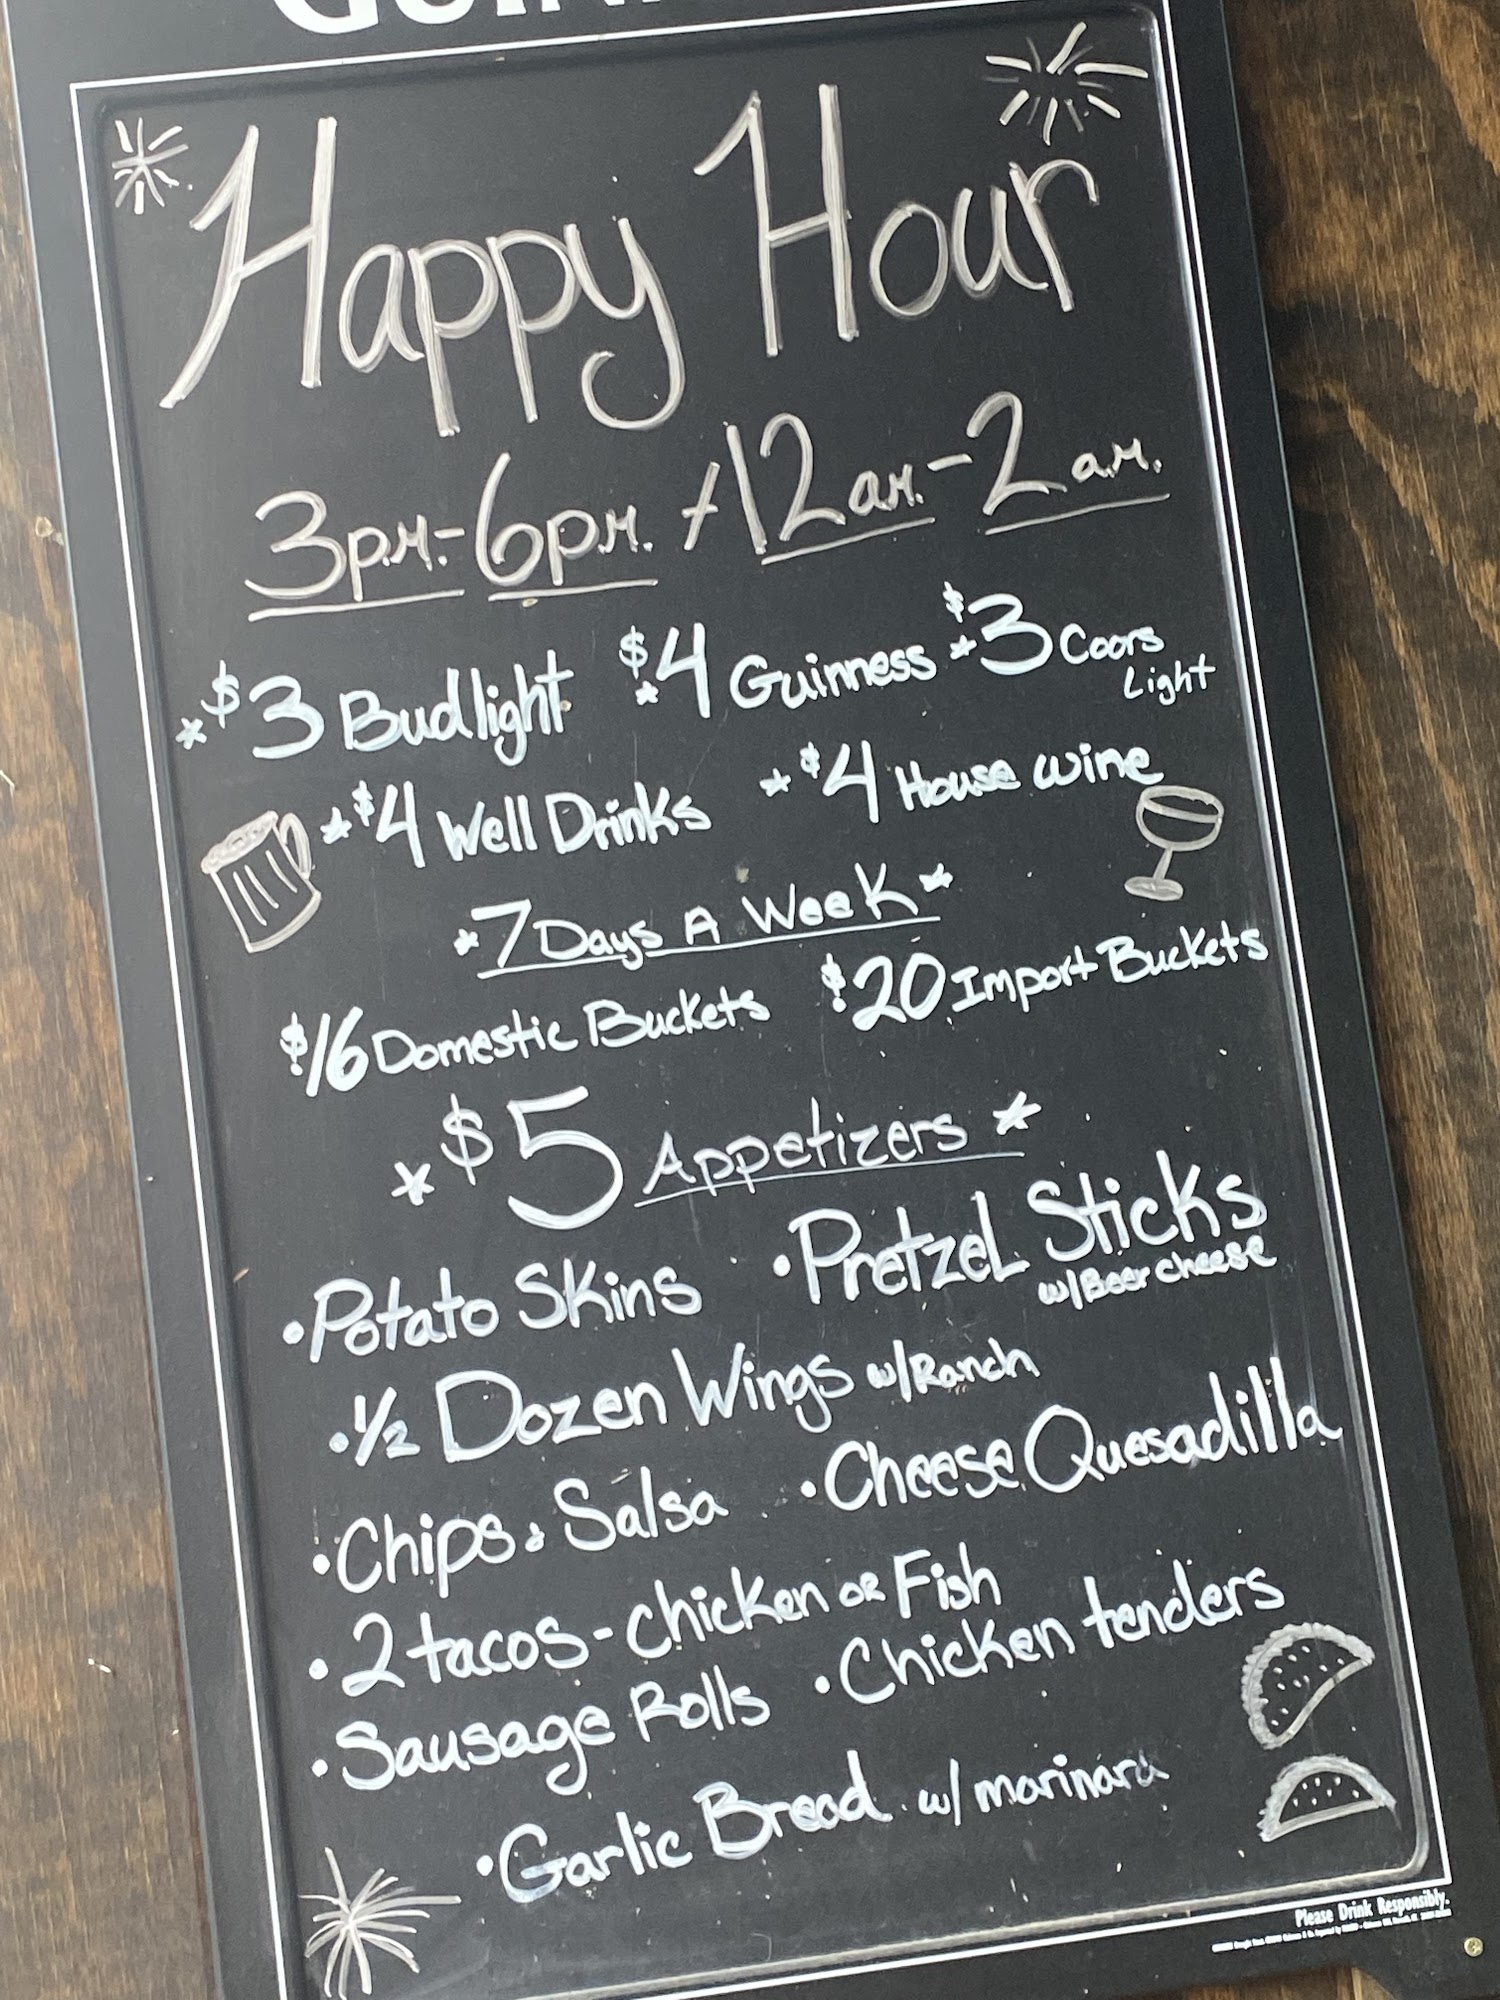 Happy Hour
3p.m.-6p.m. + 12a.m.-2a.m.
*$3 Budlight *$4 Guinness *$3 Coors Light
*$4 Well Drinks *$4 House wine
*7 Days A Week*
$16 Domestic Buckets $20 Import Buckets
*$5 Appetizers*
•Potato Skins •Pretzel Sticks
w/Beer cheese
•1/2 Dozen Wings w/Ranch
•Chips & Salsa •Cheese Quesadilla
•2 tacos-chicken or Fish
•Sausage Rolls •Chicken tenders
•Garlic Bread w/ marinara
Please Drink Responsibly.